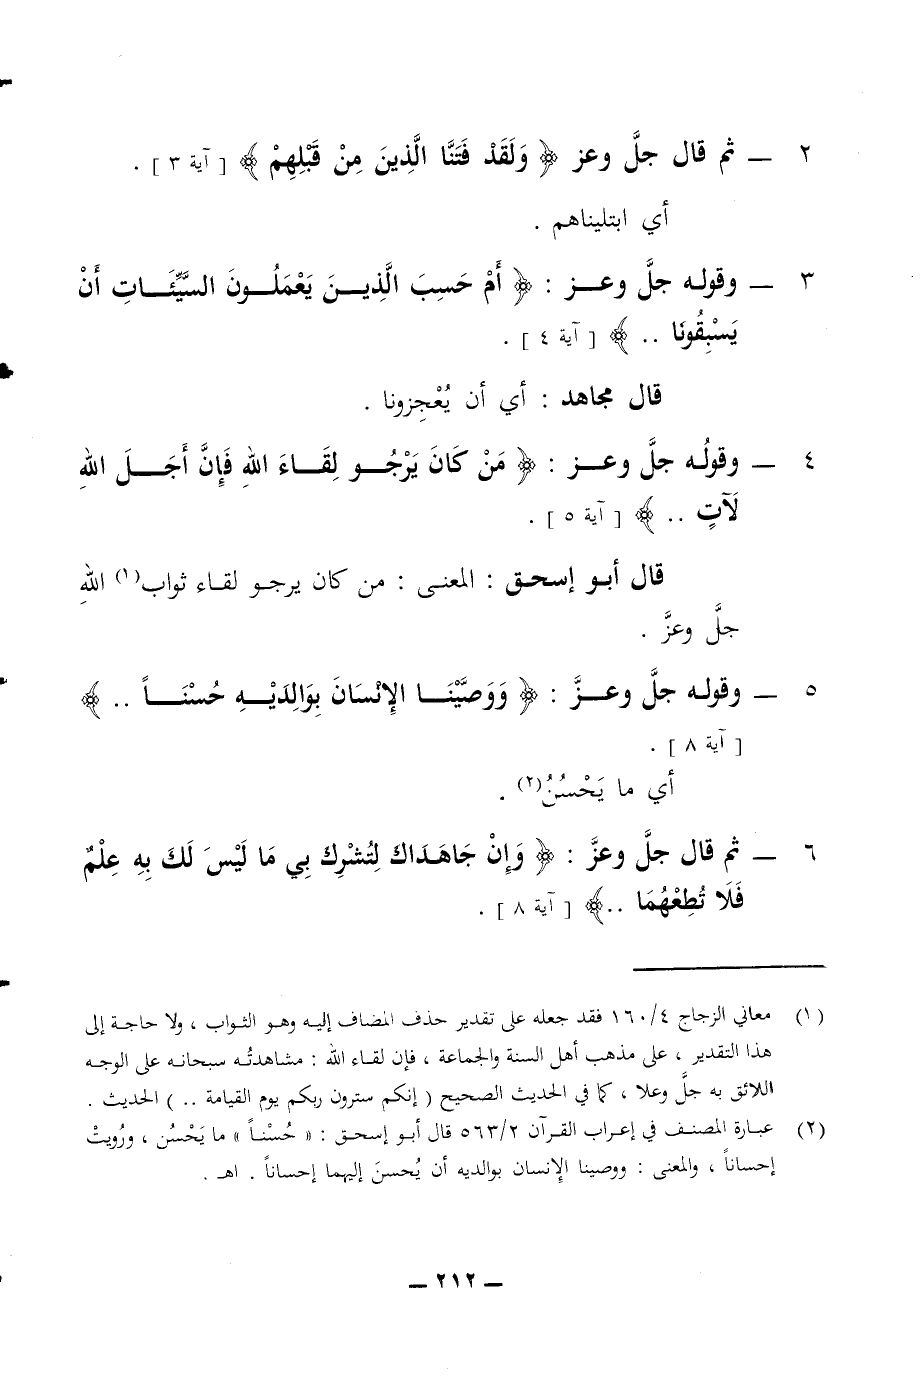 ٢ ـ ثم قال جلَّ وعز ﴿ وَلَقَدْ فَتَنَّا الَّذِينَ مِنْ قَبْلِهِمْ ﴾ [ آية ٣ ] .
أي ابتليناهم .
٣ ـ وقوله جلَّ وعز : ﴿ أَمْ حَسِبَ الَّذِينَ يَعْمَلُونَ السَّيِّئَاتِ أَنْ
يَسْبِقُونَا .. ﴾ [ آية ٤ ] .
قال مجاهد : أي أن يُعْجِزونا .
٤ ـ وقولُه جلَّ وعز : ﴿ مَنْ كَانَ يَرْجُو لِقَاءَ اللهِ فَإِنَّ أَجَلَ اللهِ
لَآتٍ .. ﴾ [ آية ٥ ] .
قال أبو إسحق : المعنى : من كان يرجو لقاء ثواب(١) اللهِ
جلَّ وعزَّ .
٥ ـ وقوله جلَّ وعزَّ : ﴿ وَوَصَّيْنَا الإِنْسَانَ بِوَالِدَيْهِ حُسْنَاً .. ﴾
[ آية ٨ ] .
أي ما يَحْسُنُ(٢) .
٦ ـ ثم قال جلَّ وعزَّ : ﴿ وَإِنْ جَاهَدَاكَ لِتُشْرِكَ بِي مَا لَيْسَ لَكَ بِهِ عِلْمٌ
فَلَا تُطِعْهُمَا ..﴾ [ آية ٨ ] .
(١) معاني الزجاج ١٦٠/٤ فقد جعله على تقدير حذف المضاف إليه وهو الثواب ، ولا حاجة إلى
هذا التقدير ، على مذهب أهل السنة والجماعة ، فإن لقاء الله : مشاهدتُه سبحانه على الوجه
اللائق به جلَّ وعلا ، كما في الحديث الصحيح ( إنكم سترون ربكم يوم القيامة .. ) الحديث .
(٢) عبارة المصنف في إعراب القرآن ٥٦٣/٢ قال أبو إسحق : « حُسْناً » ما يَحْسُن ، ورُويتْ
إحساناً ، والمعنى : ووصينا الإنسان بوالديه أن يُحسنَ إليهما إحساناً . اهـ .
ـ ٢١٢ ـ